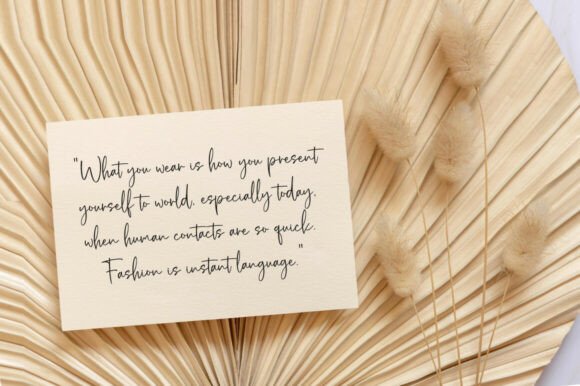 "What you wear is how you present
yourself to world, especially today,
when human contacts are so quick.
Fashion is instant language."